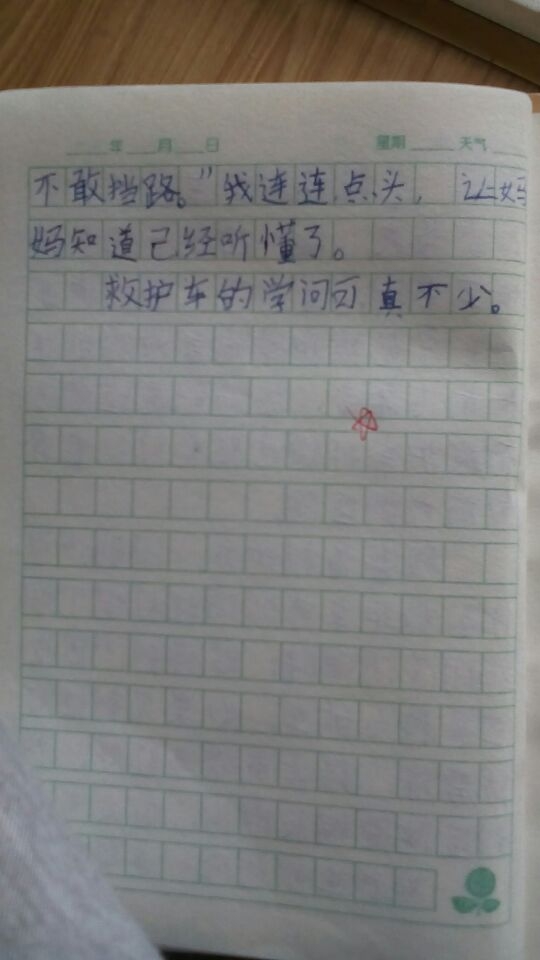 年 月 日 星期 天气
不敢挡路。”我连连点头，让妈
妈知道已经听懂了。
救护车的学问可真不少。